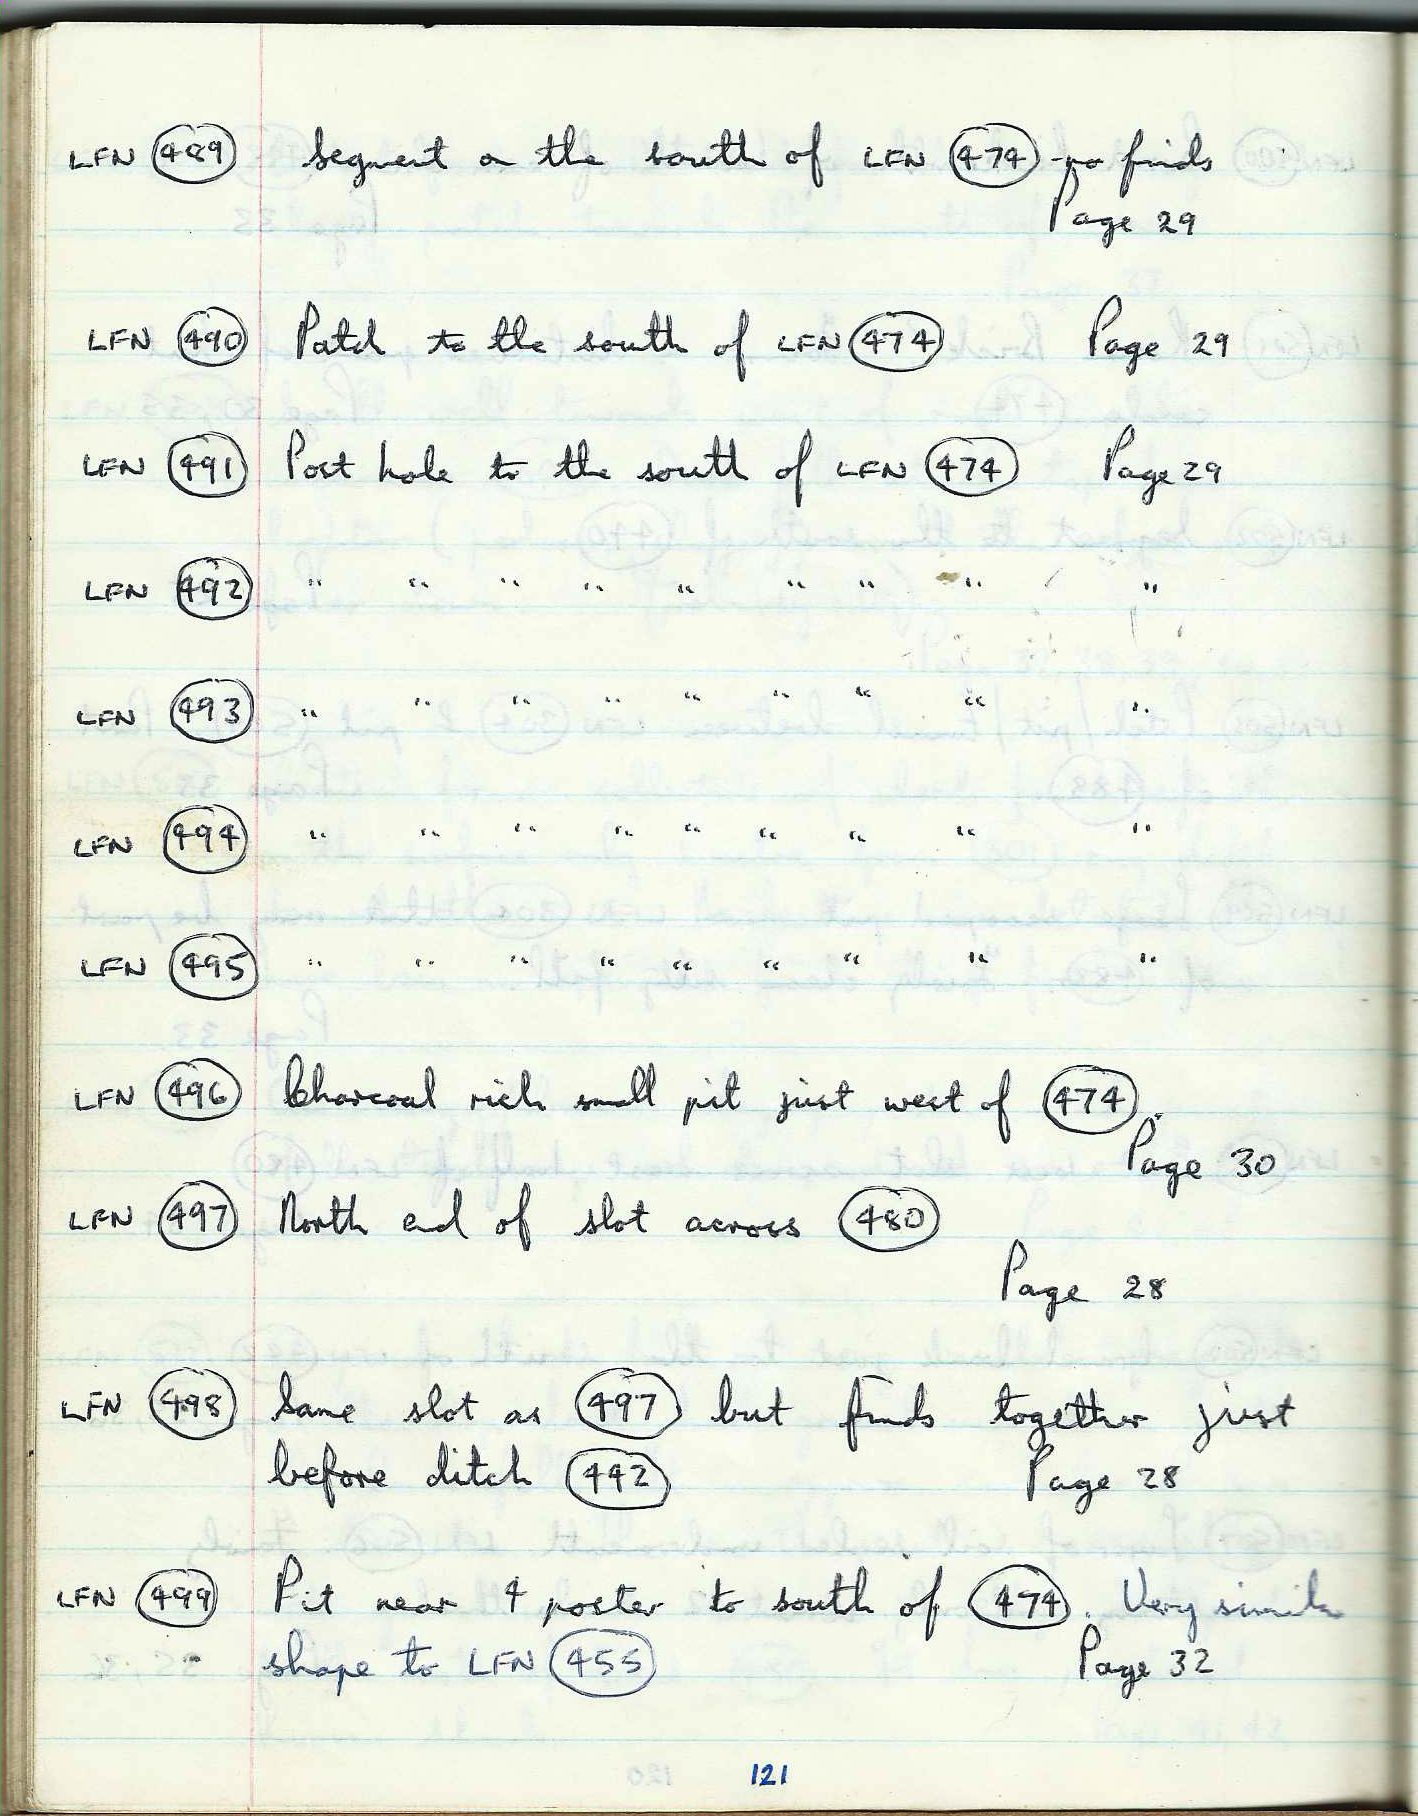 LFN 489 Segment on the south of LFN 474 - no finds
Page 29
LFN 490 Patch to the south of LFN 474 Page 29
LFN 491 Post hole to the south of LFN 474 Page 29
LFN 492 " " " " " " " " "
LFN 493 " " " " " " " " "
LFN 494 " " " " " " " " "
LFN 495 " " " " " " " " "
LFN 496 Charcoal rich small pit just west of 474.
Page 30
LFN 497 North end of slot across 480
Page 28
LFN 498 Same slot as 497 but finds together just
before ditch 442 Page 28
LFN 499 Pit near 4 poster to south of 474. Very similar
shape to LFN 455 Page 32
121